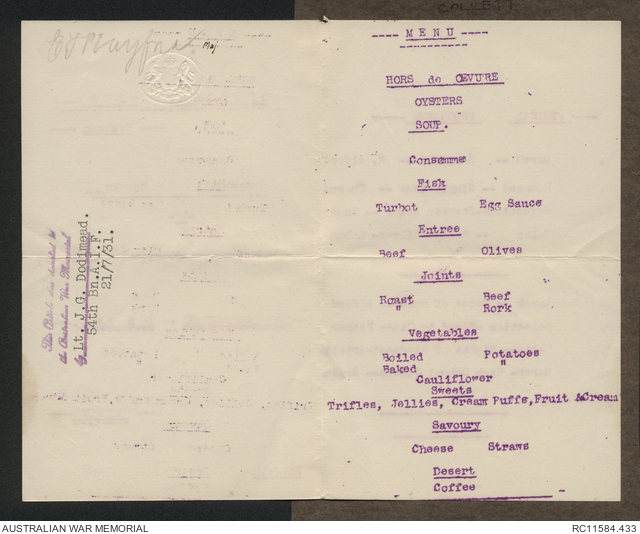 COLLETT
Maj
This Article was donated to
the Australian War Memorial
by Lt. J.G. Dodimead.
54th Bn.A.I.F.
21/7/31.
---- M E N U ----
----------
HORS de OEVURE
OYSTERS
SOUP.
Consomme
Fisk
Turbot Egg Sauce
Entree
Beef Olives
Joints
Roast Beef
" Rork
Vegetables
Boiled Potatoes
Baked "
Cauliflower
Sweets
Trifles, Jellies, Cream Puffs, Fruit &Cream
Savoury
Cheese Straws
Desert
Coffee
AUSTRALIAN WAR MEMORIAL RC11584.433